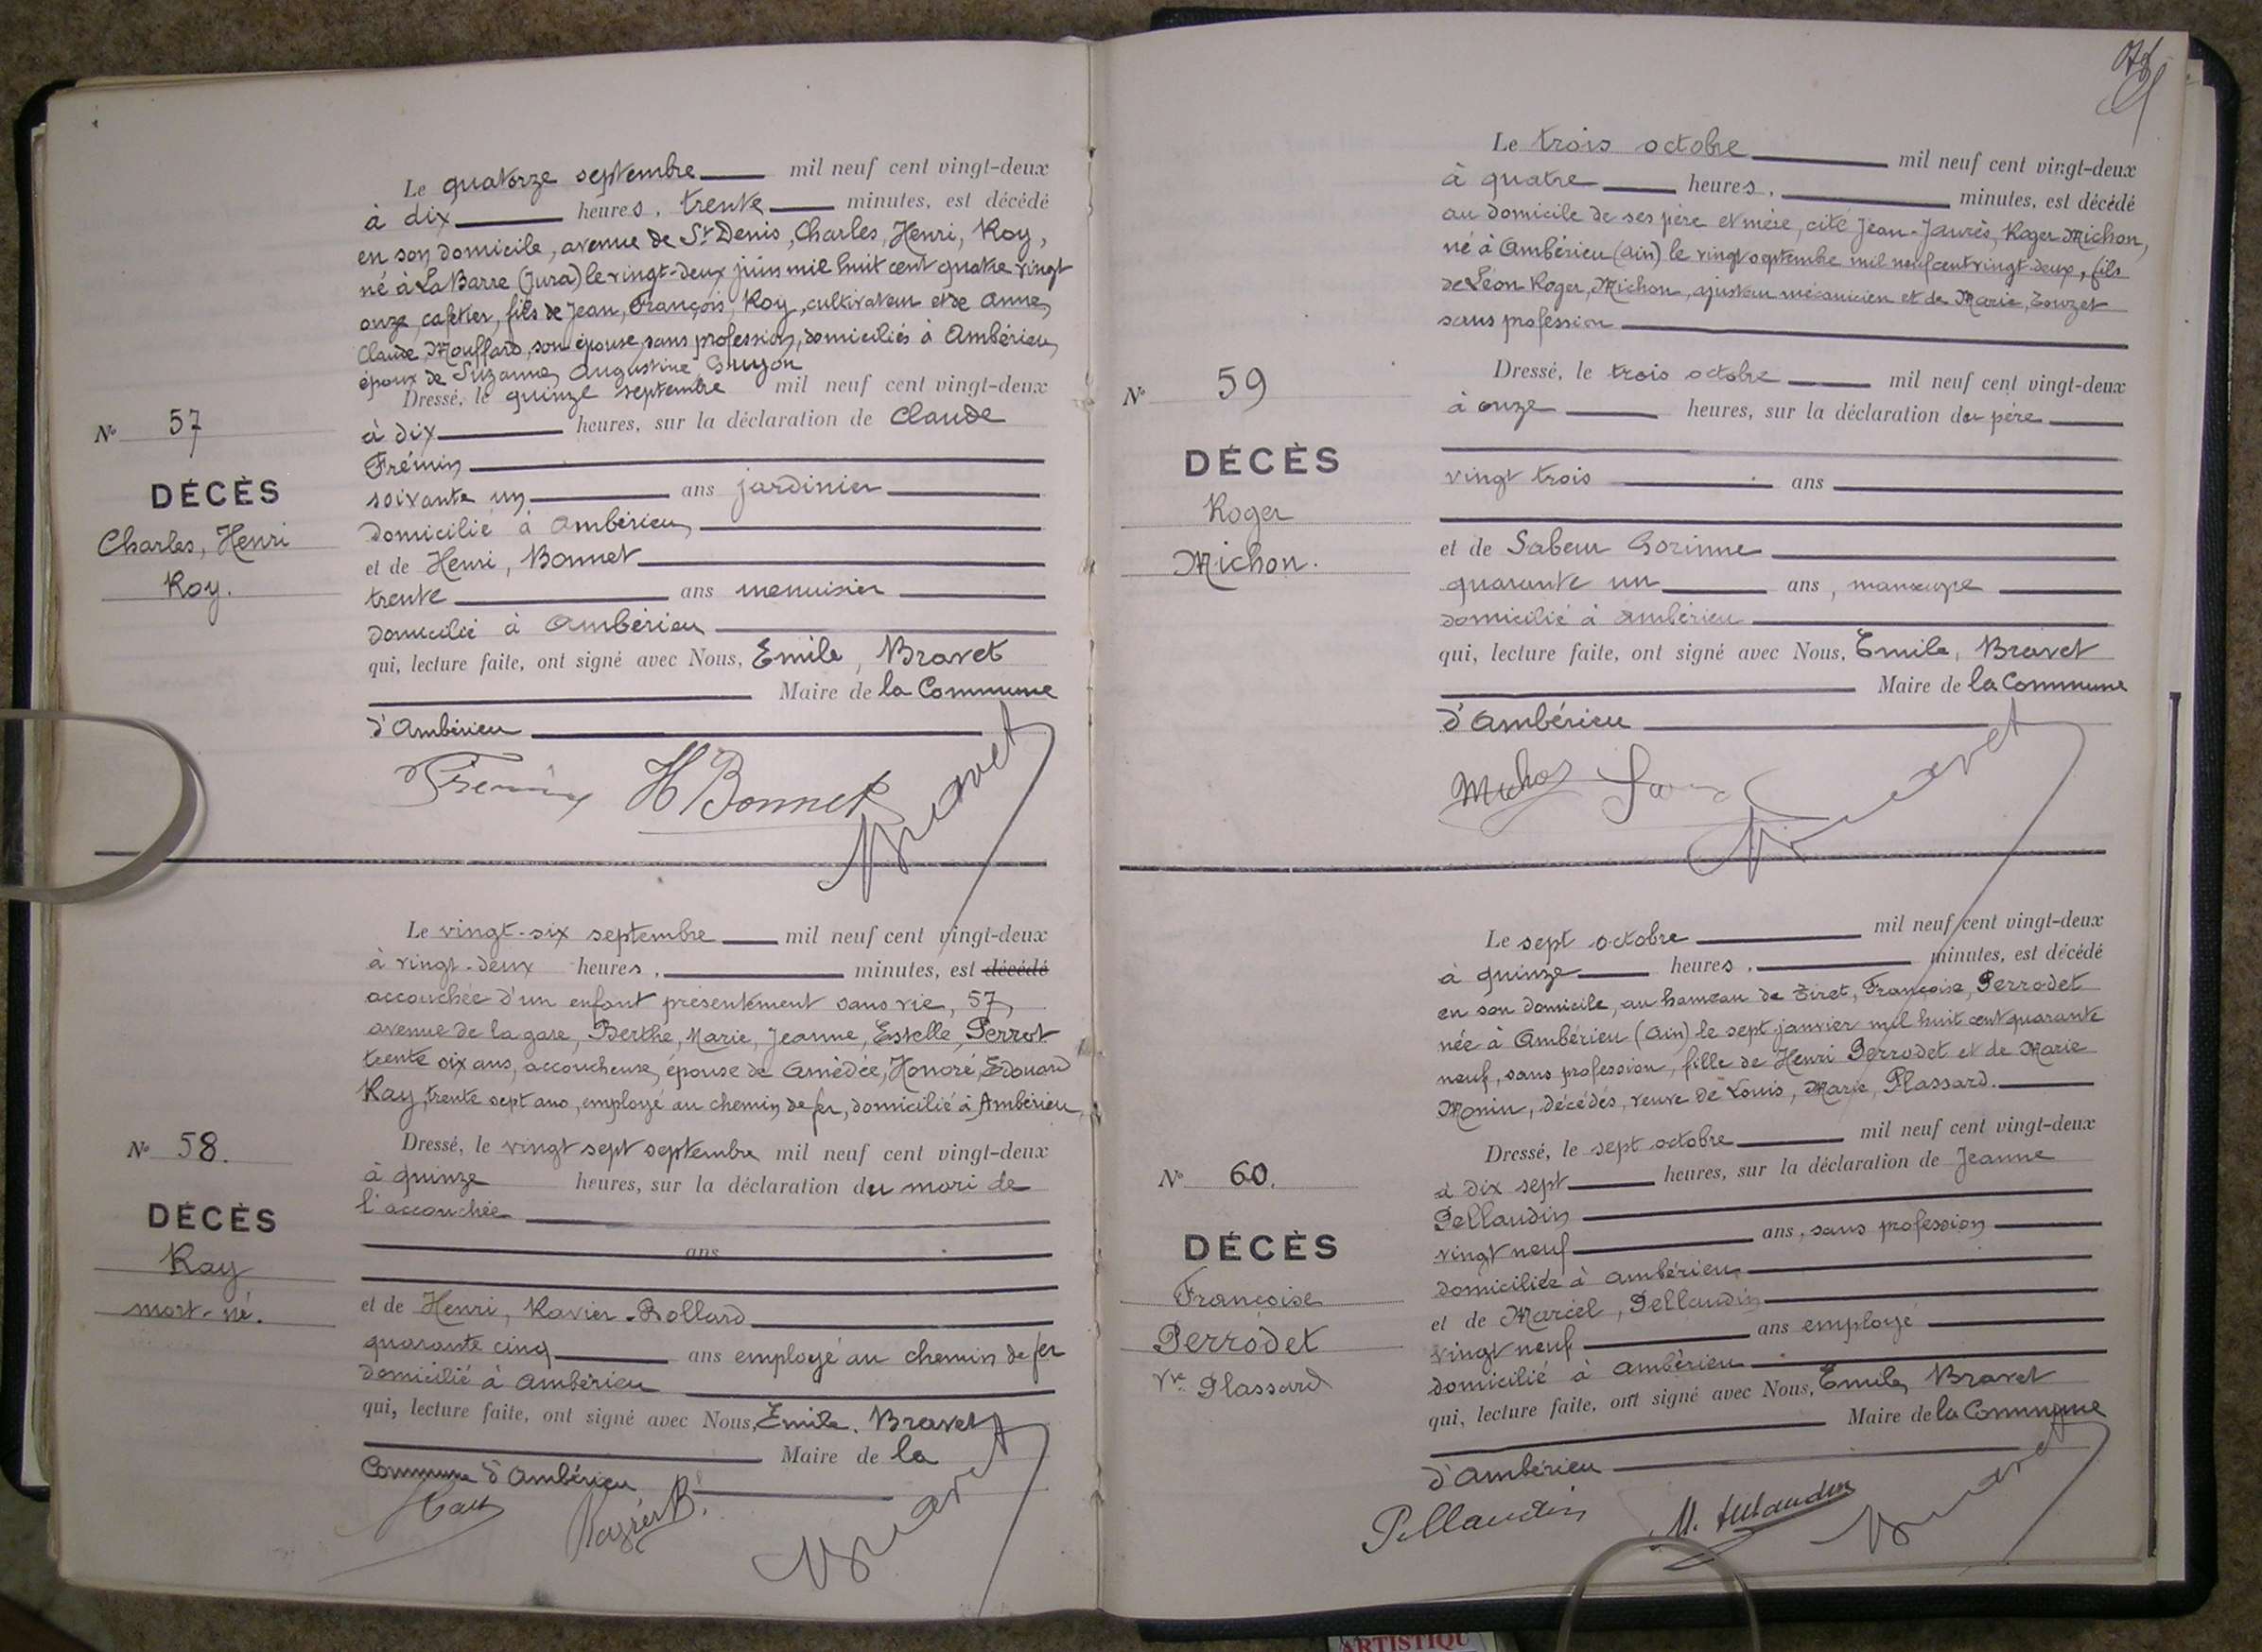 Le quatorze septembre mil neuf cent vingt-deux
à dix heures, trente minutes, est décédé
en son domicile, avenue de St Denis, Charles, Henri, Roy,
né à La Barre (Jura) le vingt-deux juin mil huit cent quatre vingt
onze, cafetier, fils de Jean, François, Roy, cultivateur et de Anne,
Claude, Mouffard, son épouse, sans profession, domiciliés à Ambérieu,
époux de Suzanne, Augustine Guyon
Dressé, le quinze septembre mil neuf cent vingt-deux
No 57
à dix heures, sur la déclaration de Claude
Frémin
DÉCÈS
soixante un ans jardinier
Charles, Henri
domicilié à Ambérieu,
Roy.
et de Henri, Bonnet
trente ans menuisier
domicilié à Ambérieu
qui, lecture faite, ont signé avec Nous, Emile, Bravet
Maire de la Commune
d'Ambérieu
Fremin H Bonnet Bravet
Le vingt-six septembre mil neuf cent vingt-deux
à vingt-deux heures, minutes, est décédé
accouchée d'un enfant présentement sans vie, 57,
avenue de la gare, Berthe, Marie, Jeanne, Estelle, Perrot
trente six ans, accoucheuse, épouse de Amédée, Honoré, Edouard
Ray, trente sept ans, employé au chemin de fer, domicilié à Ambérieu,
No 58.
Dressé, le vingt sept septembre mil neuf cent vingt-deux
à quinze heures, sur la déclaration du mari de
DÉCÈS
l'accouchée
Ray
ans
mort-né.
et de Henri, Ravier-Bollard
quarante cinq ans employé au chemin de fer
domicilié à Ambérieu
qui, lecture faite, ont signé avec Nous, Emile. Bravet
Maire de la
Commune d'Ambérieu
Ray Ravier B. Bravet
Le trois octobre mil neuf cent vingt-deux
à quatre heures, minutes, est décédé
au domicile de ses père et mère, cité Jean-Jaurès, Roger Michon,
né à Ambérieu (Ain) le vingt septembre mil neuf cent vingt-deux, fils
de Léon Roger, Michon, ajusteur mécanicien et de Marie, Touzet
sans profession
No 59
Dressé, le trois octobre mil neuf cent vingt-deux
à onze heures, sur la déclaration du père
DÉCÈS
vingt trois ans
Roger
Michon.
et de Sabeur
quarante un ans, manœuvre
domicilié à Ambérieu
qui, lecture faite, ont signé avec Nous, Emile, Bravet
Maire de la Commune
d'Ambérieu
Michon Bravet
Le sept octobre mil neuf cent vingt-deux
à quinze heures, minutes, est décédé
en son domicile, au hameau de Tiret, Françoise, Perrodet
née à Ambérieu (Ain) le sept janvier mil huit cent quarante
neuf, sans profession, fille de Henri Perrodet et de Marie
Monin, décédés, veuve de Louis, Marie, Plassard.
No 60.
Dressé, le sept octobre mil neuf cent vingt-deux
à dix sept heures, sur la déclaration de Jeanne
Pellaudin
DÉCÈS
vingt neuf ans, sans profession
Françoise
domiciliée à Ambérieu,
Perrodet
et de Marcel, Pellaudin
Vve Plassard
vingt neuf ans employé
domicilié à Ambérieu
qui, lecture faite, ont signé avec Nous, Emile, Bravet
Maire de la Commune
d'Ambérieu
Pellaudin M. Pellaudin Bravet
ARTISTIQU